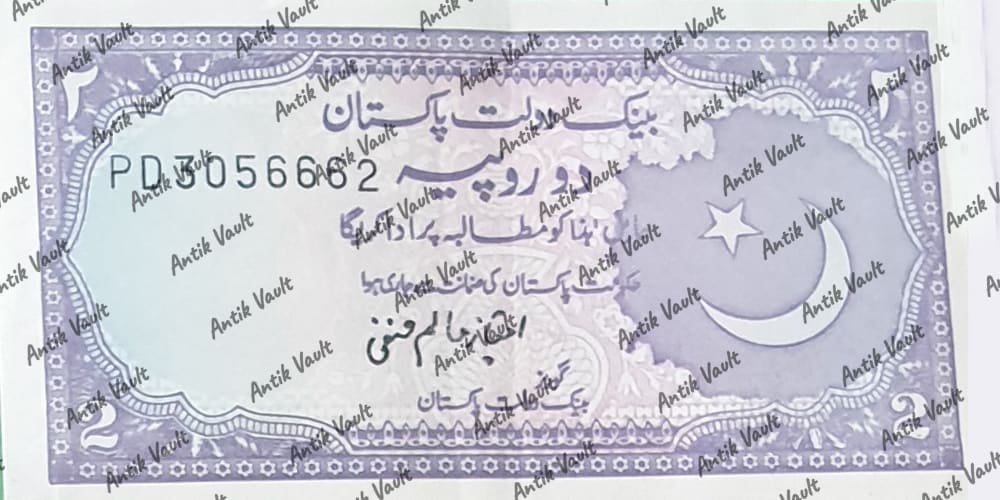 ۲ ۲
بینک دولت پاکستان
PD3056662
دو روپیہ
حامل ہٰذا کو مطالبہ پر ادا کریگا
حکومت پاکستان کی ضمانت سے جاری ہوا
امتیاز عالم حنفی
گورنر
بینک دولت پاکستان
2 2
Antik Vault